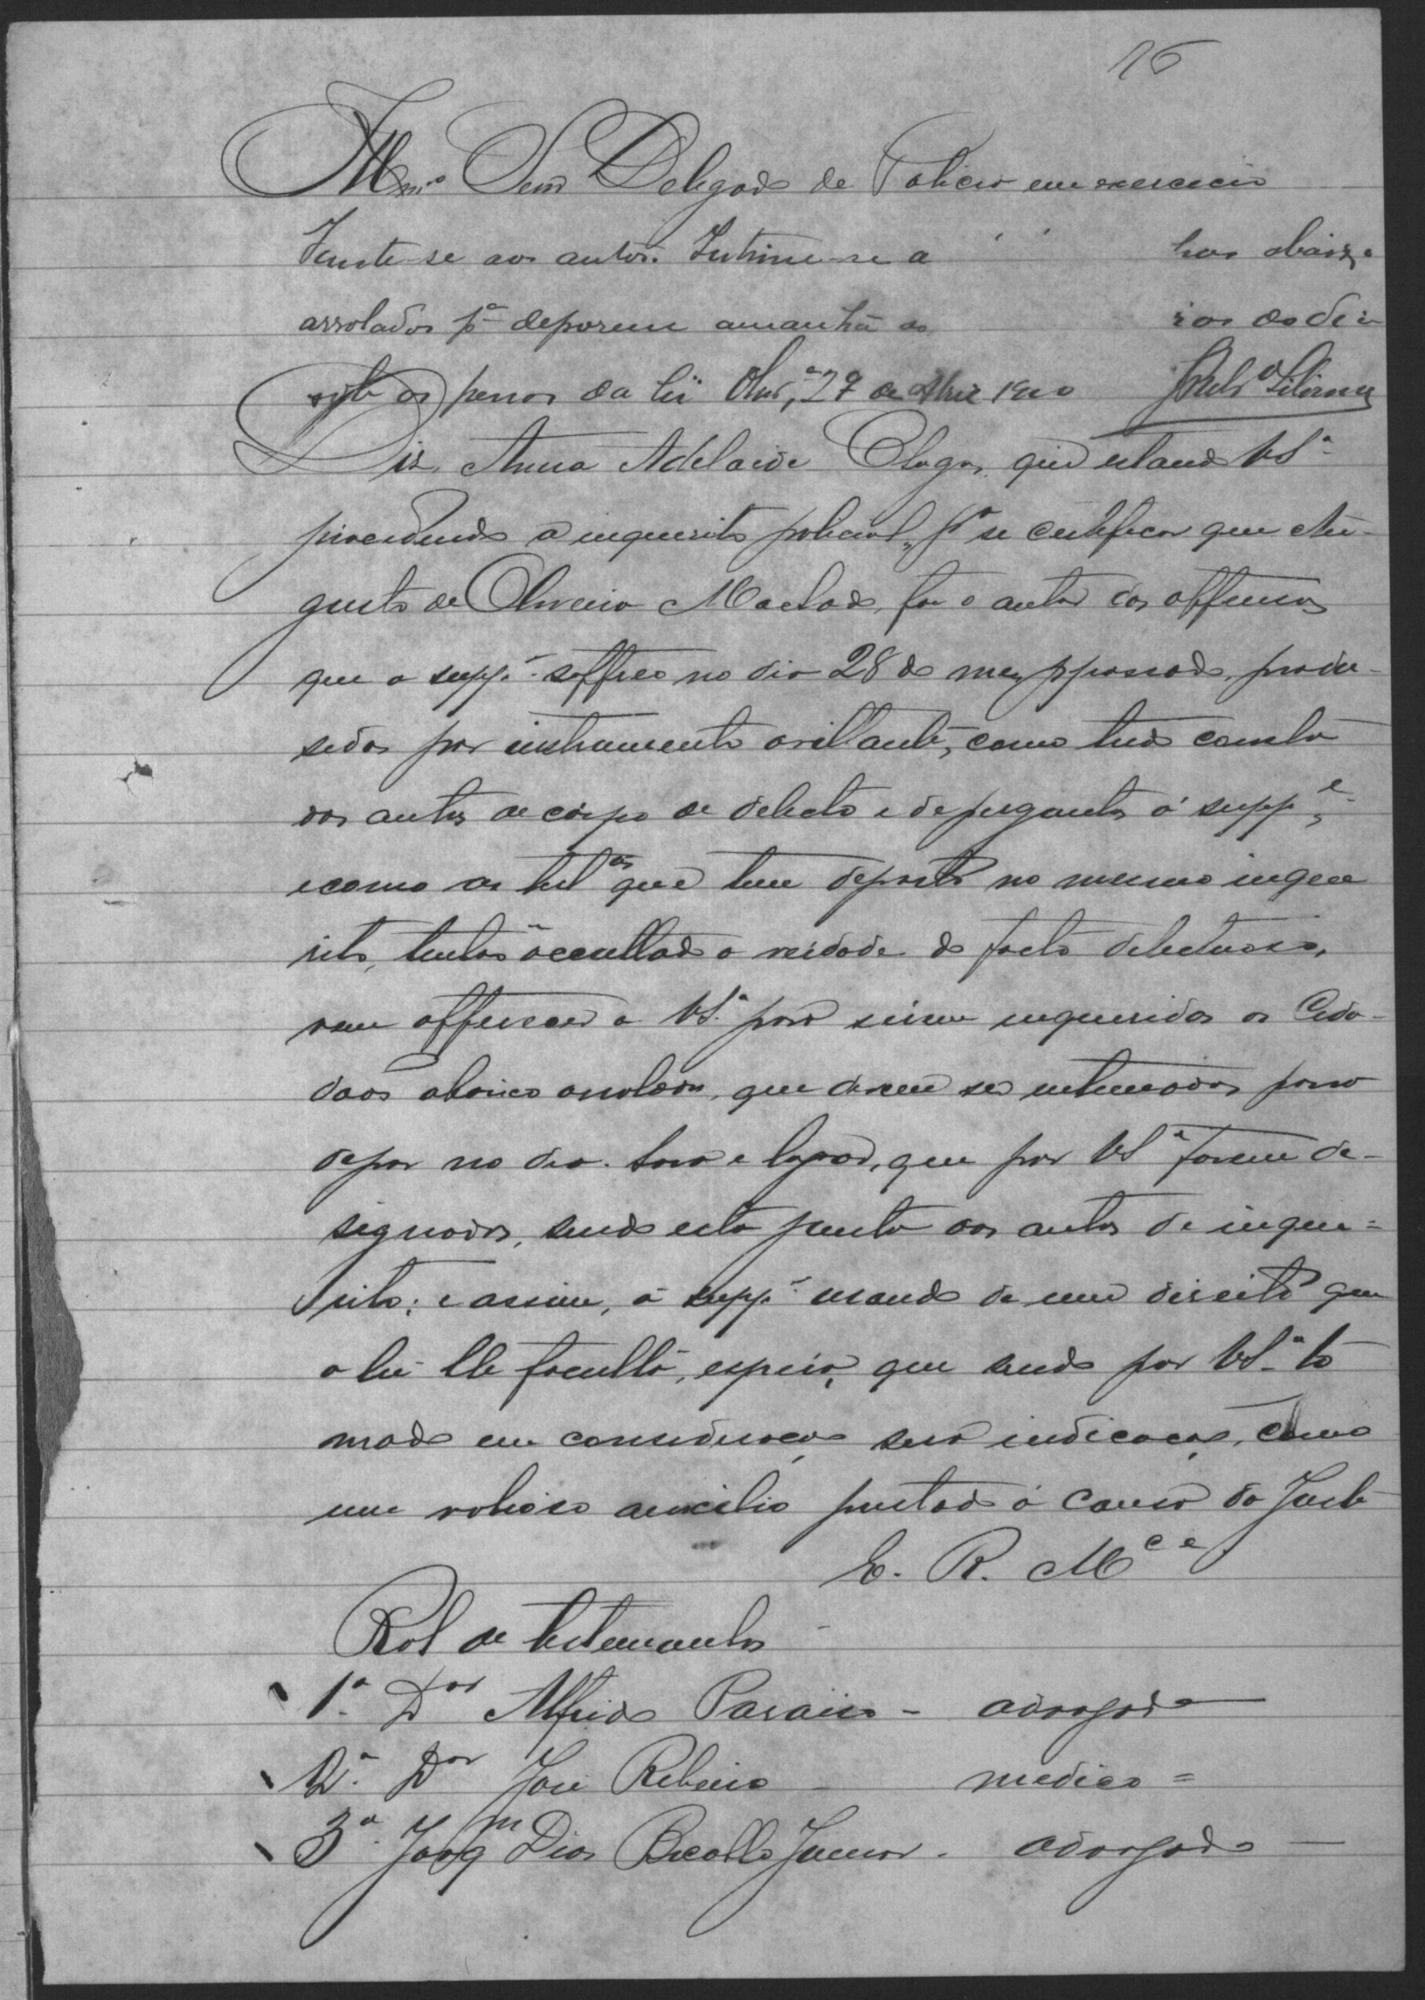 16
Illmo Senr Delegado de Policia em exercicio
Junte-se aos autos. Intime-se a has abaixo
arrolados pa deporem amanhã as ras do dia
sob as penas da lei 27 de Abril 1900
Diz Anna Adelaide Chagas, que estando VSa
procedendo a inquerito policial, pa se certeficar que Au-
gusto de Oliveira Machado, foi o autor das offensas
que a suppe soffreo no dia 28 do mez ppassado, produ-
sidas por instrumento aviltante, como tudo consta
dos autos de corpo de delicto e de perguntas á suppe,
e como as testas que tem deposto no mesmo inque
rito, tenhão occultado a verdade do facto delictuoso,
vem offerecer a VSa para serem inqueridos os Cida-
dãos abaixo arrolados, que devem ser intimados para
depor no dia, hora e lugar, que por VSa forem de-
signados, sendo esta junta aos autos de inque-
rito; e assim, a suppe usando de um direito que
a lei lhe faculta, espera, que sendo por VSa to
mado em consideração sua indicação, como
um valioso auxilio prestado á causa da Justa
E. R. Mce
Rol de testemunhas
1a Dor Alfredo Paraiso - advogado
2a Dor José Ribeiro - medico =
3a Joaqm Dias Junior - advogado